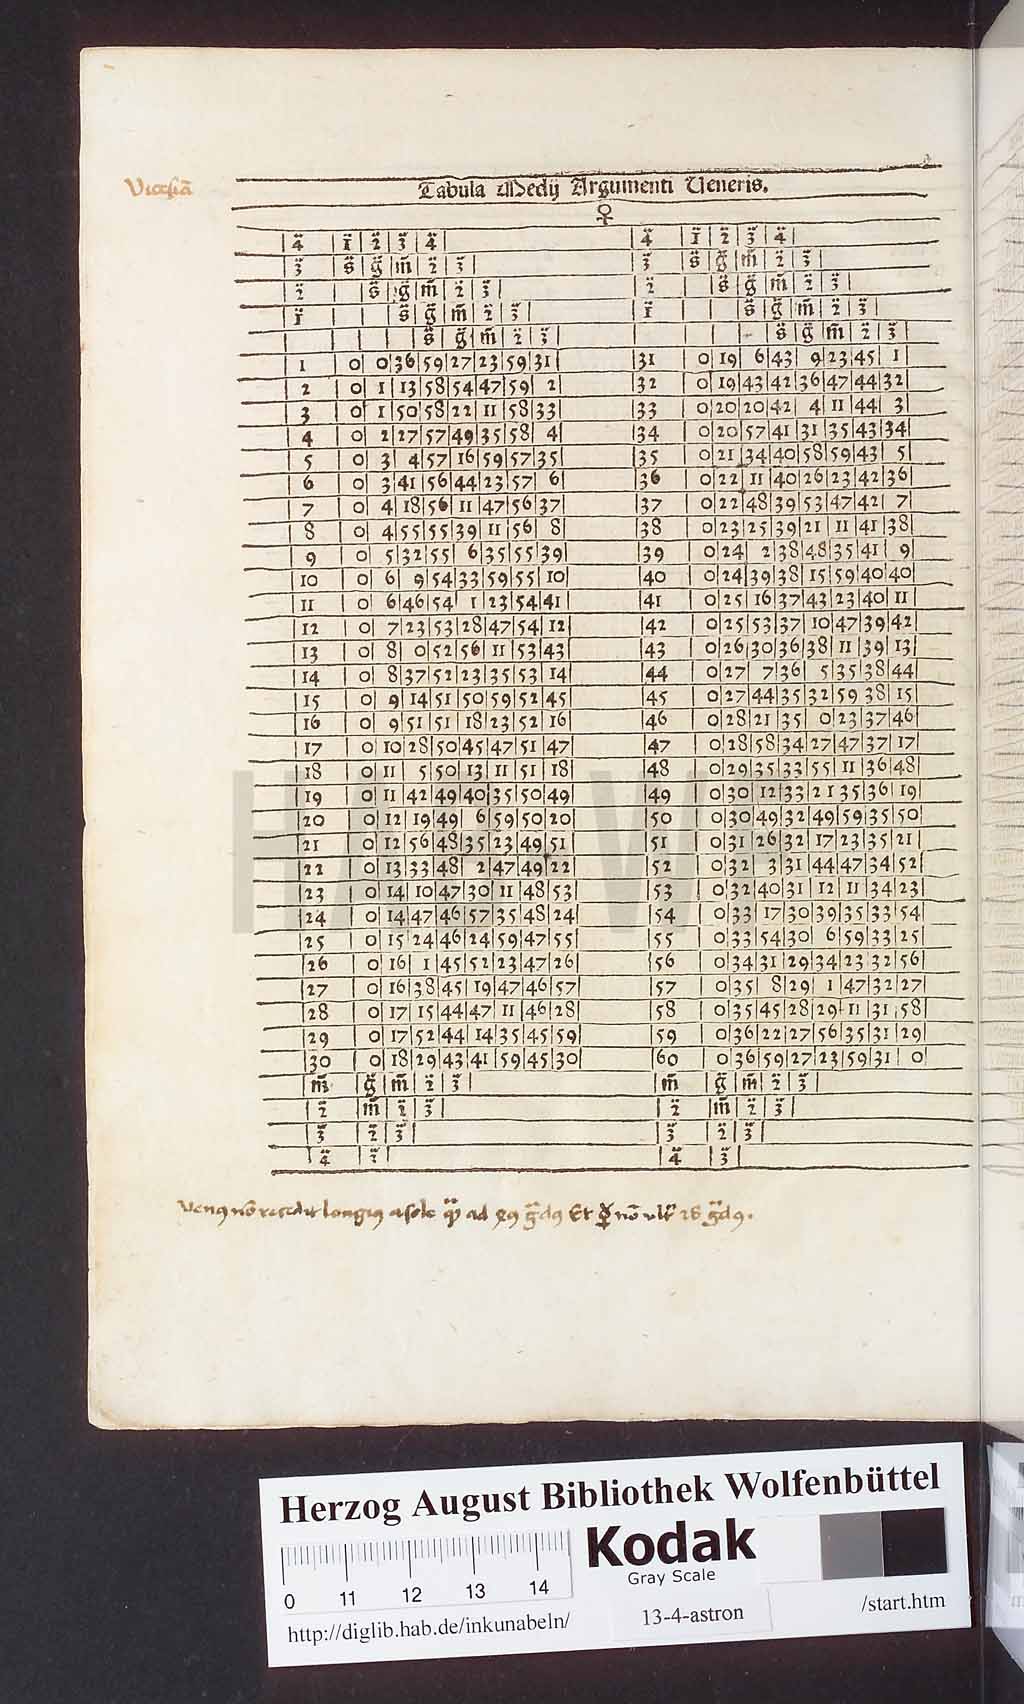 Tabula Medij Argumenti Veneris.
♀
4̈ 1̈ 2̈ 3̈ 4̈ 4̈ 1̈ 2̈ 3̈ 4̈
3̈ s̄ ḡ m̄ 2̈ 3̈ 3̈ s̄ ḡ m̄ 2̈ 3̈
2̈ s̄ ḡ m̄ 2̈ 3̈ 2̈ s̄ ḡ m̄ 2̈ 3̈
1̈ s̄ ḡ m̄ 2̈ 3̈ 1̈ s̄ ḡ m̄ 2̈ 3̈
s̄ ḡ m̄ 2̈ 3̈ s̄ ḡ m̄ 2̈ 3̈
1 0 0 36 59 27 23 59 31 31 0 19 6 43 9 23 45 1
2 0 1 13 58 54 47 59 2 32 0 19 43 42 36 47 44 32
3 0 1 50 58 22 11 58 33 33 0 20 20 42 4 11 44 3
4 0 2 27 57 49 35 58 4 34 0 20 57 41 31 35 43 34
5 0 3 4 57 16 59 57 35 35 0 21 34 40 58 59 43 5
6 0 3 41 56 44 23 57 6 36 0 22 11 40 26 23 42 36
7 0 4 18 56 11 47 56 37 37 0 22 48 39 53 47 42 7
8 0 4 55 55 39 11 56 8 38 0 23 25 39 21 11 41 38
9 0 5 32 55 6 35 55 39 39 0 24 2 38 48 35 41 9
10 0 6 9 54 33 59 55 10 40 0 24 39 38 15 59 40 40
11 0 6 46 54 1 23 54 41 41 0 25 16 37 43 23 40 11
12 0 7 23 53 28 47 54 12 42 0 25 53 37 10 47 39 42
13 0 8 0 52 56 11 53 43 43 0 26 30 36 38 11 39 13
14 0 8 37 52 23 35 53 14 44 0 27 7 36 5 35 38 44
15 0 9 14 51 50 59 52 45 45 0 27 44 35 32 59 38 15
16 0 9 51 51 18 23 52 16 46 0 28 21 35 0 23 37 46
17 0 10 28 50 45 47 51 47 47 0 28 58 34 27 47 37 17
18 0 11 5 50 13 11 51 18 48 0 29 35 33 55 11 36 48
19 0 11 42 49 40 35 50 49 49 0 30 12 33 21 35 36 19
20 0 12 19 49 6 59 50 20 50 0 30 49 32 49 59 35 50
21 0 12 56 48 35 23 49 51 51 0 31 26 32 17 23 35 21
22 0 13 33 48 2 47 49 22 52 0 32 3 31 44 47 34 52
23 0 14 10 47 30 11 48 53 53 0 32 40 31 12 11 34 23
24 0 14 47 46 57 35 48 24 54 0 33 17 30 39 35 33 54
25 0 15 24 46 24 59 47 55 55 0 33 54 30 6 59 33 25
26 0 16 1 45 52 23 47 26 56 0 34 31 29 34 23 32 56
27 0 16 38 45 19 47 46 57 57 0 35 8 29 1 47 32 27
28 0 17 15 44 47 11 46 28 58 0 35 45 28 29 11 31 58
29 0 17 52 44 14 35 45 59 59 0 36 22 27 56 35 31 29
30 0 18 29 43 41 59 45 30 60 0 36 59 27 23 59 31 0
m̄ ḡ m̄ 2̈ 3̈ m̄ ḡ m̄ 2̈ 3̈
2̈ m̄ 2̈ 3̈ 2̈ m̄ 2̈ 3̈
3̈ 2̈ 3̈ 3̈ 2̈ 3̈
4̈ 3̈ 4̈ 3̈
HAB W
Herzog August Bibliothek Wolfenbüttel
Kodak
Gray Scale
0 11 12 13 14
http://diglib.hab.de/inkunabeln/ 13-4-astron /start.htm